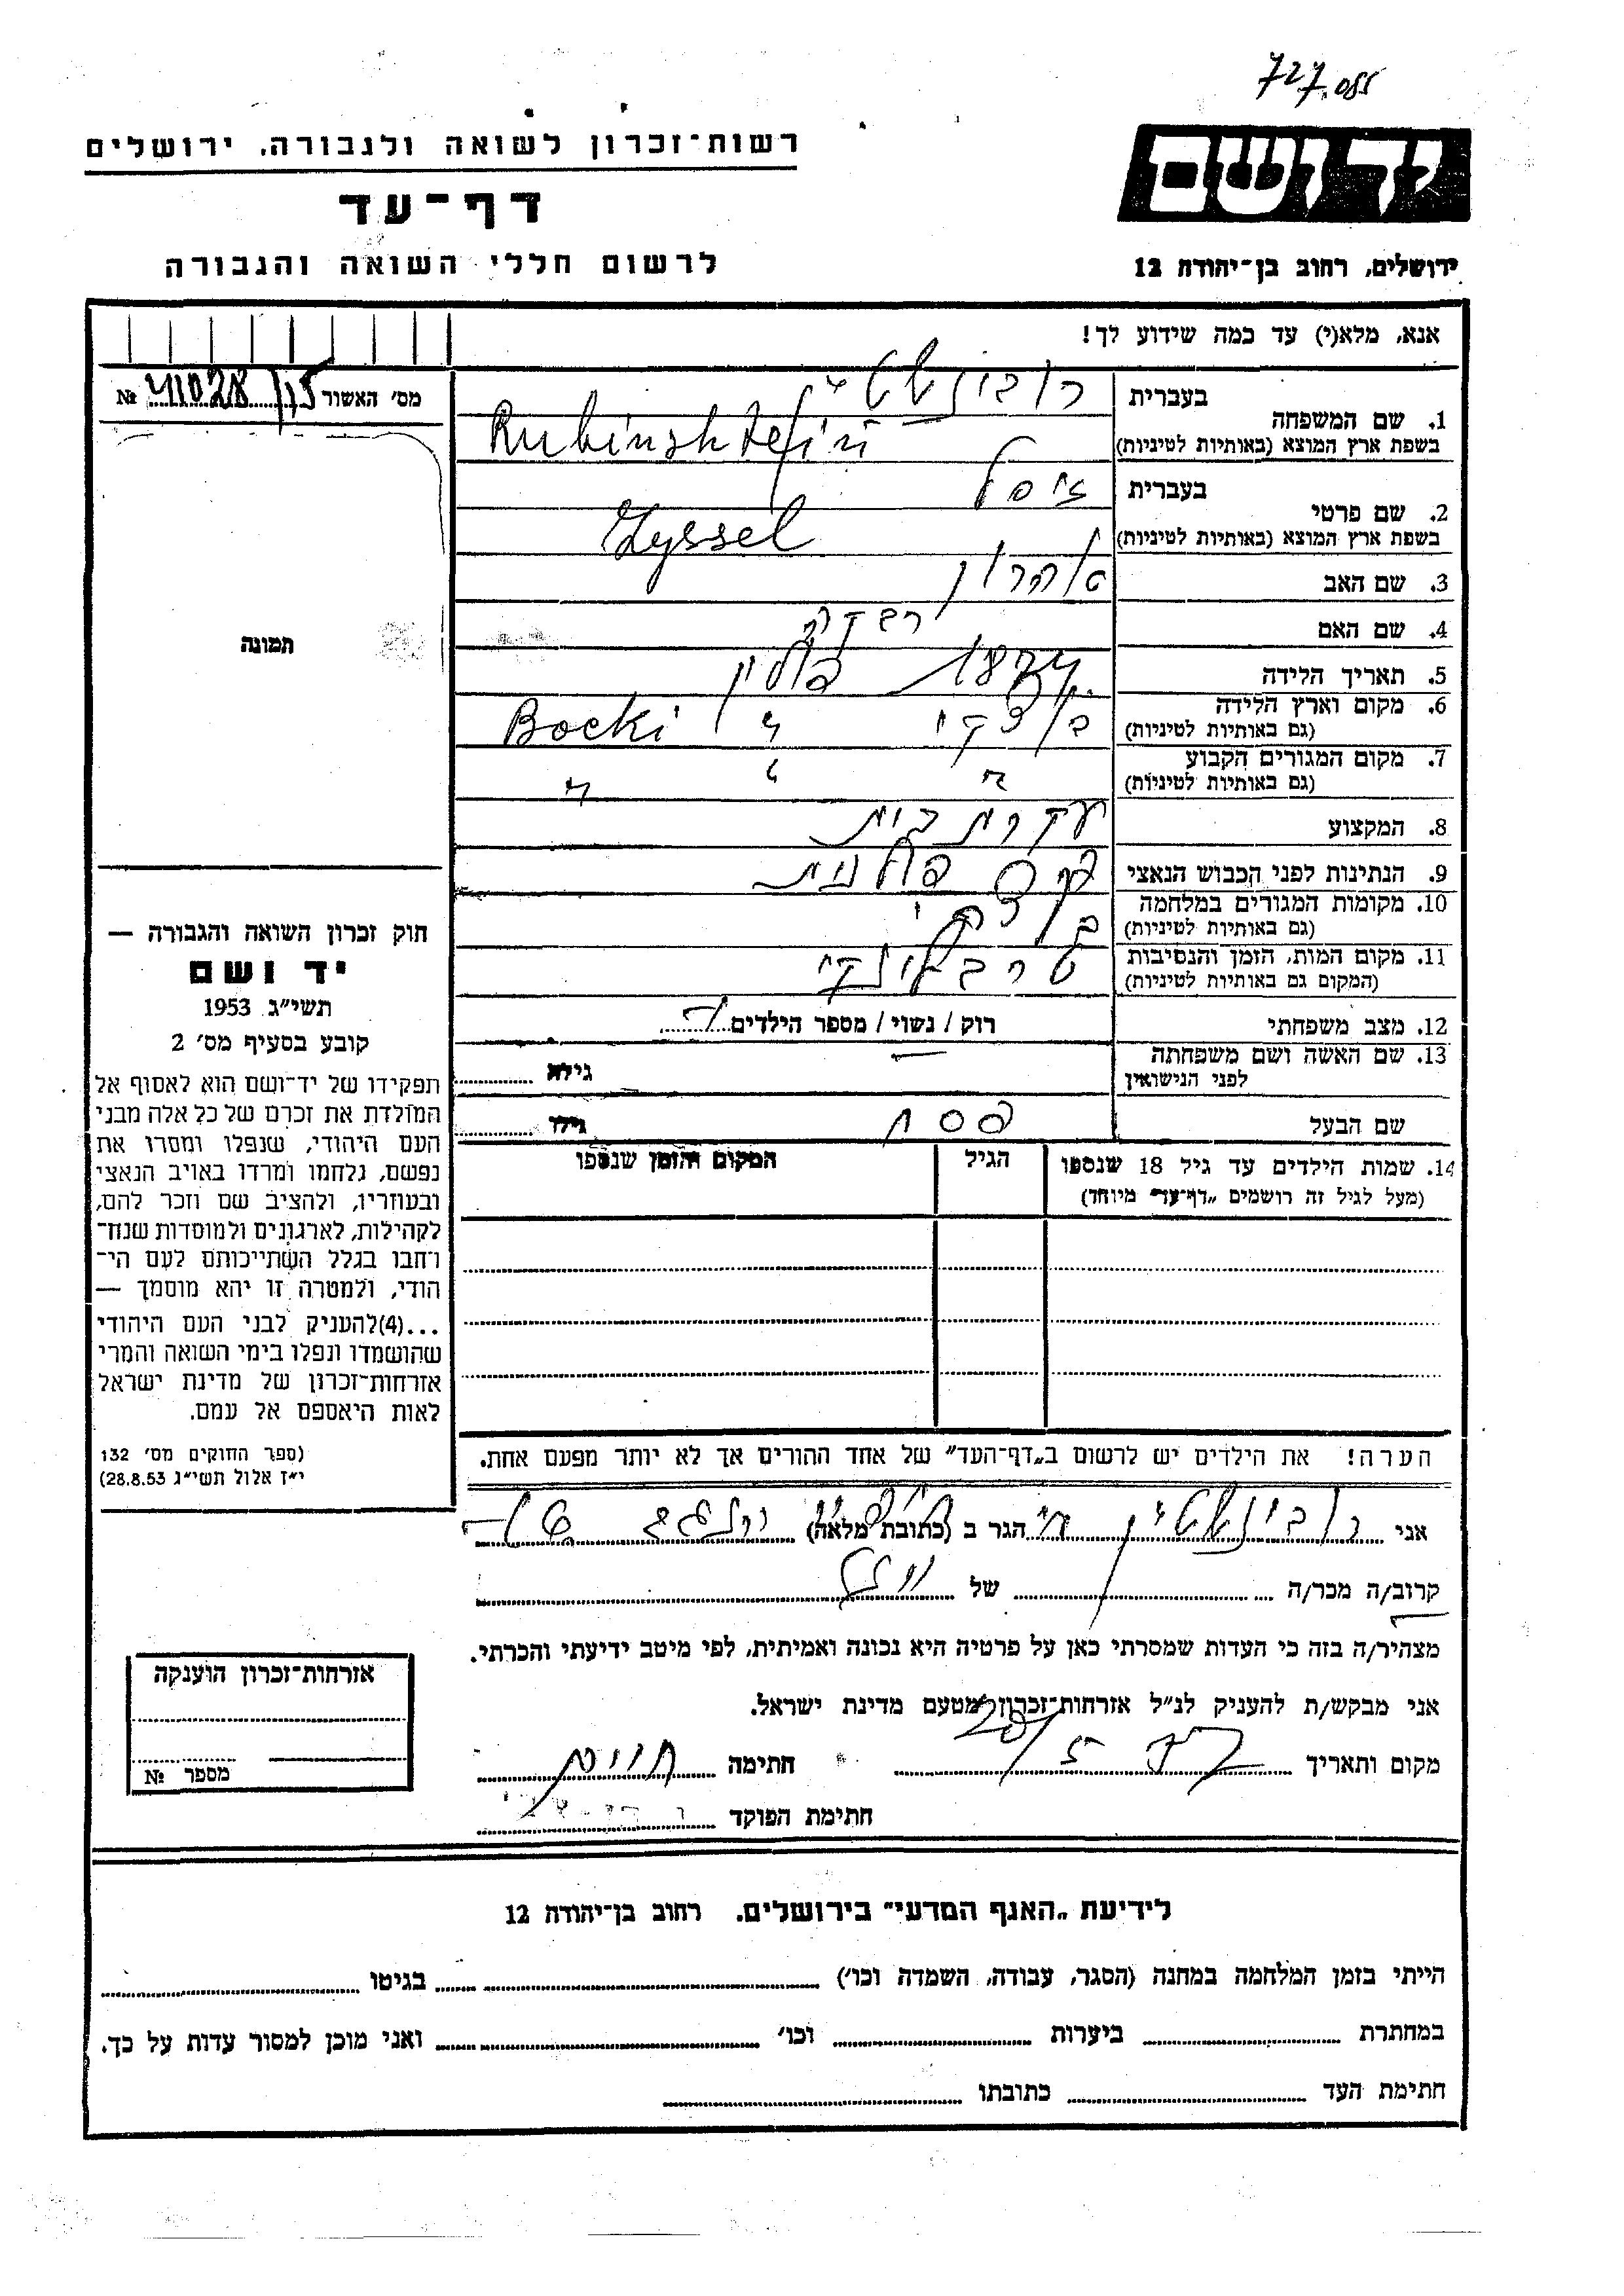 727.085
רשות־זכרון לשואה ולגבורה, ירושלים
דף־עד
לרשום חללי השואה והגבורה
יד ושם
ירושלים, רחוב בן־יהודה 12
אנא, מלא(י) עד כמה שידוע לך!
מס׳ האשור
№
1. שם המשפחה
בעברית רובינשטיין
בשפת ארץ המוצא (באותיות לטיניות) Rubinshtejin
2. שם פרטי
בעברית זיסל
בשפת ארץ המוצא (באותיות לטיניות) Zyssel
3. שם האב אהרון
4. שם האם רבקה
5. תאריך הלידה 1874 פולין
6. מקום וארץ הלידה
(גם באותיות לטיניות) בוצקי " Bocki
7. מקום המגורים הקבוע
(גם באותיות לטיניות) " " "
8. המקצוע עקרת בית
9. הנתינות לפני הכבוש הנאצי פולנית
10. מקומות המגורים במלחמה
(גם באותיות לטיניות) בוצקי
11. מקום המות, הזמן והנסיבות
(המקום גם באותיות לטיניות) טרבלינקי
12. מצב משפחתי רוק / נשוי / מספר הילדים
13. שם האשה ושם משפחתה
לפני הנישואין
גילה
שם הבעל פסח
גילו
14. שמות הילדים עד גיל 18 שנספו
(מעל לגיל זה רושמים „דף־עד״ מיוחד)
הגיל
המקום והזמן שנספו
הערה! את הילדים יש לרשום ב„דף־העד״ של אחד ההורים אך לא יותר מפעם אחת.
תמונה
חוק זכרון השואה והגבורה —
יד ושם
תשי״ג 1953
קובע בסעיף מס׳ 2
תפקידו של יד־ושם הוא לאסוף אל
המולדת את זכרם של כל אלה מבני
העם היהודי, שנפלו ומסרו את
נפשם, נלחמו ומרדו באויב הנאצי
ובעוזריו, ולהציב שם וזכר להם,
לקהילות, לארגונים ולמוסדות שנח־
רבו בגלל השתייכותם לעם הי־
הודי, ולמטרה זו יהא מוסמך —
...(4)להעניק לבני העם היהודי
שהושמדו ונפלו בימי השואה והמרי
אזרחות־זכרון של מדינת ישראל
לאות היאספם אל עמם.
(ספר החוקים מס׳ 132
י״ז אלול תשי״ג 28.8.53)
אני רובינשטיין הגר ב (כתובת מלאה)
קרוב/ה מכר/ה של
מצהיר/ה בזה כי העדות שמסרתי כאן על פרטיה היא נכונה ואמיתית, לפי מיטב ידיעתי והכרתי.
אני מבקש/ת להעניק לנ״ל אזרחות־זכרון מטעם מדינת ישראל.
מקום ותאריך 20/5 57 חתימה
חתימת הפוקד
אזרחות־זכרון הוענקה
מספר №
לידיעת „האגף המדעי״ בירושלים, רחוב בן־יהודה 12
הייתי בזמן המלחמה במחנה (הסגר, עבודה, השמדה וכו׳) בגיטו
במחתרת ביערות וכו׳ ואני מוכן למסור עדות על כך.
חתימת העד כתובתו